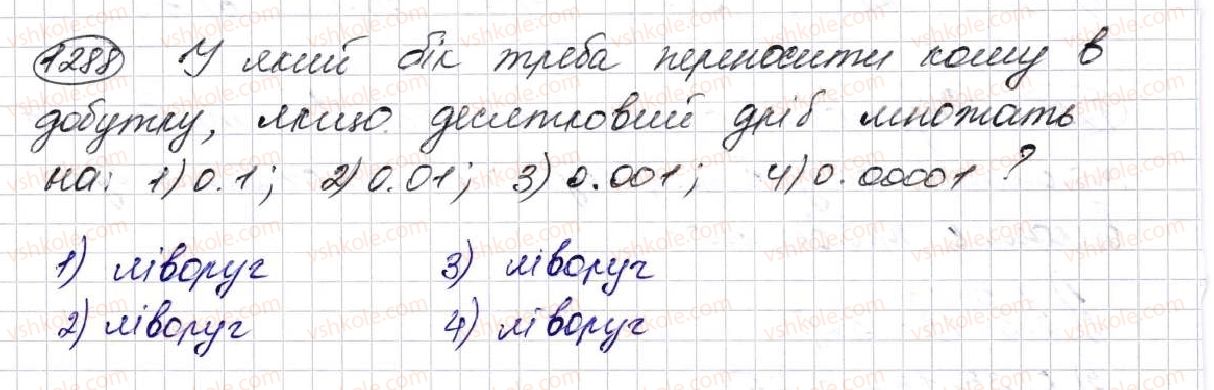 1288 У який бік треба переносити кому в
добутку, якщо десятковий дріб множать
на: 1) 0.1; 2) 0.01; 3) 0.001; 4) 0.00001?
1) ліворуч 3) ліворуч
2) ліворуч 4) ліворуч